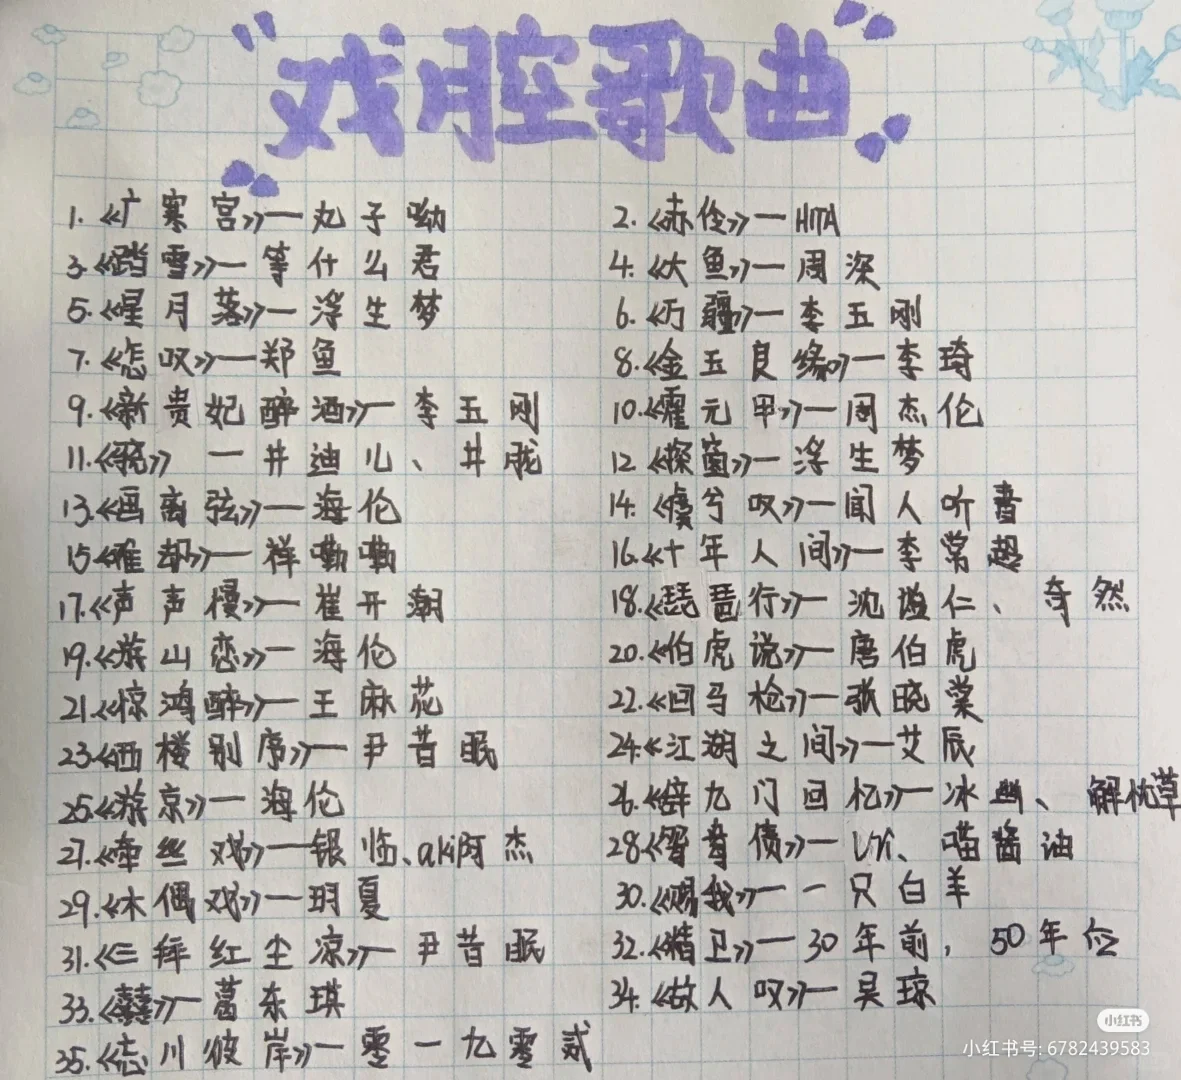 戏腔歌曲
1.《广寒宫》一丸子呦
2.《赤伶》一HITA
3.《踏雪》一等什么君
4.《大鱼》一周深
5.《星月落》一浮生梦
6.《万疆》一李玉刚
7.《怎叹》一郑鱼
8.《金玉良缘》一李琦
9.《新贵妃醉酒》一李玉刚
10.《霍元甲》一周杰伦
11.《骁》一井迪儿、井胧
12.《探窗》一浮生梦
13.《画离弦》一海伦
14.《虞兮叹》一闻人听書
15《难却》一祥嘞嘞
16.《十年人间》一李常超
17.《声声慢》一崔开潮
18.《琵琶行》一沈谧仁、奇然
19.《游山恋》一海伦
20.《伯虎说》一唐伯虎
21《惊鸿醉》一王麻花
22.《回马枪》一张晓棠
23.《西楼别序》一尹昔眠
24.《江湖之间》一艾辰
25.《游京》一海伦
26.《辞九门回忆》一冰幽、解忧草
27.《牵丝戏》一银临、aki阿杰
28.《一喵酱油
29.《木偶戏》一玥夏
30.《赐我》一一只白羊
31.《三拜红尘凉》一尹昔眠
32.《精卫》一30年前，50年
33.《囍》一葛东琪
34.《故人叹》一吴琼
35.《忘川彼岸》一零一九零贰
小红书
小红书号: 6782439583